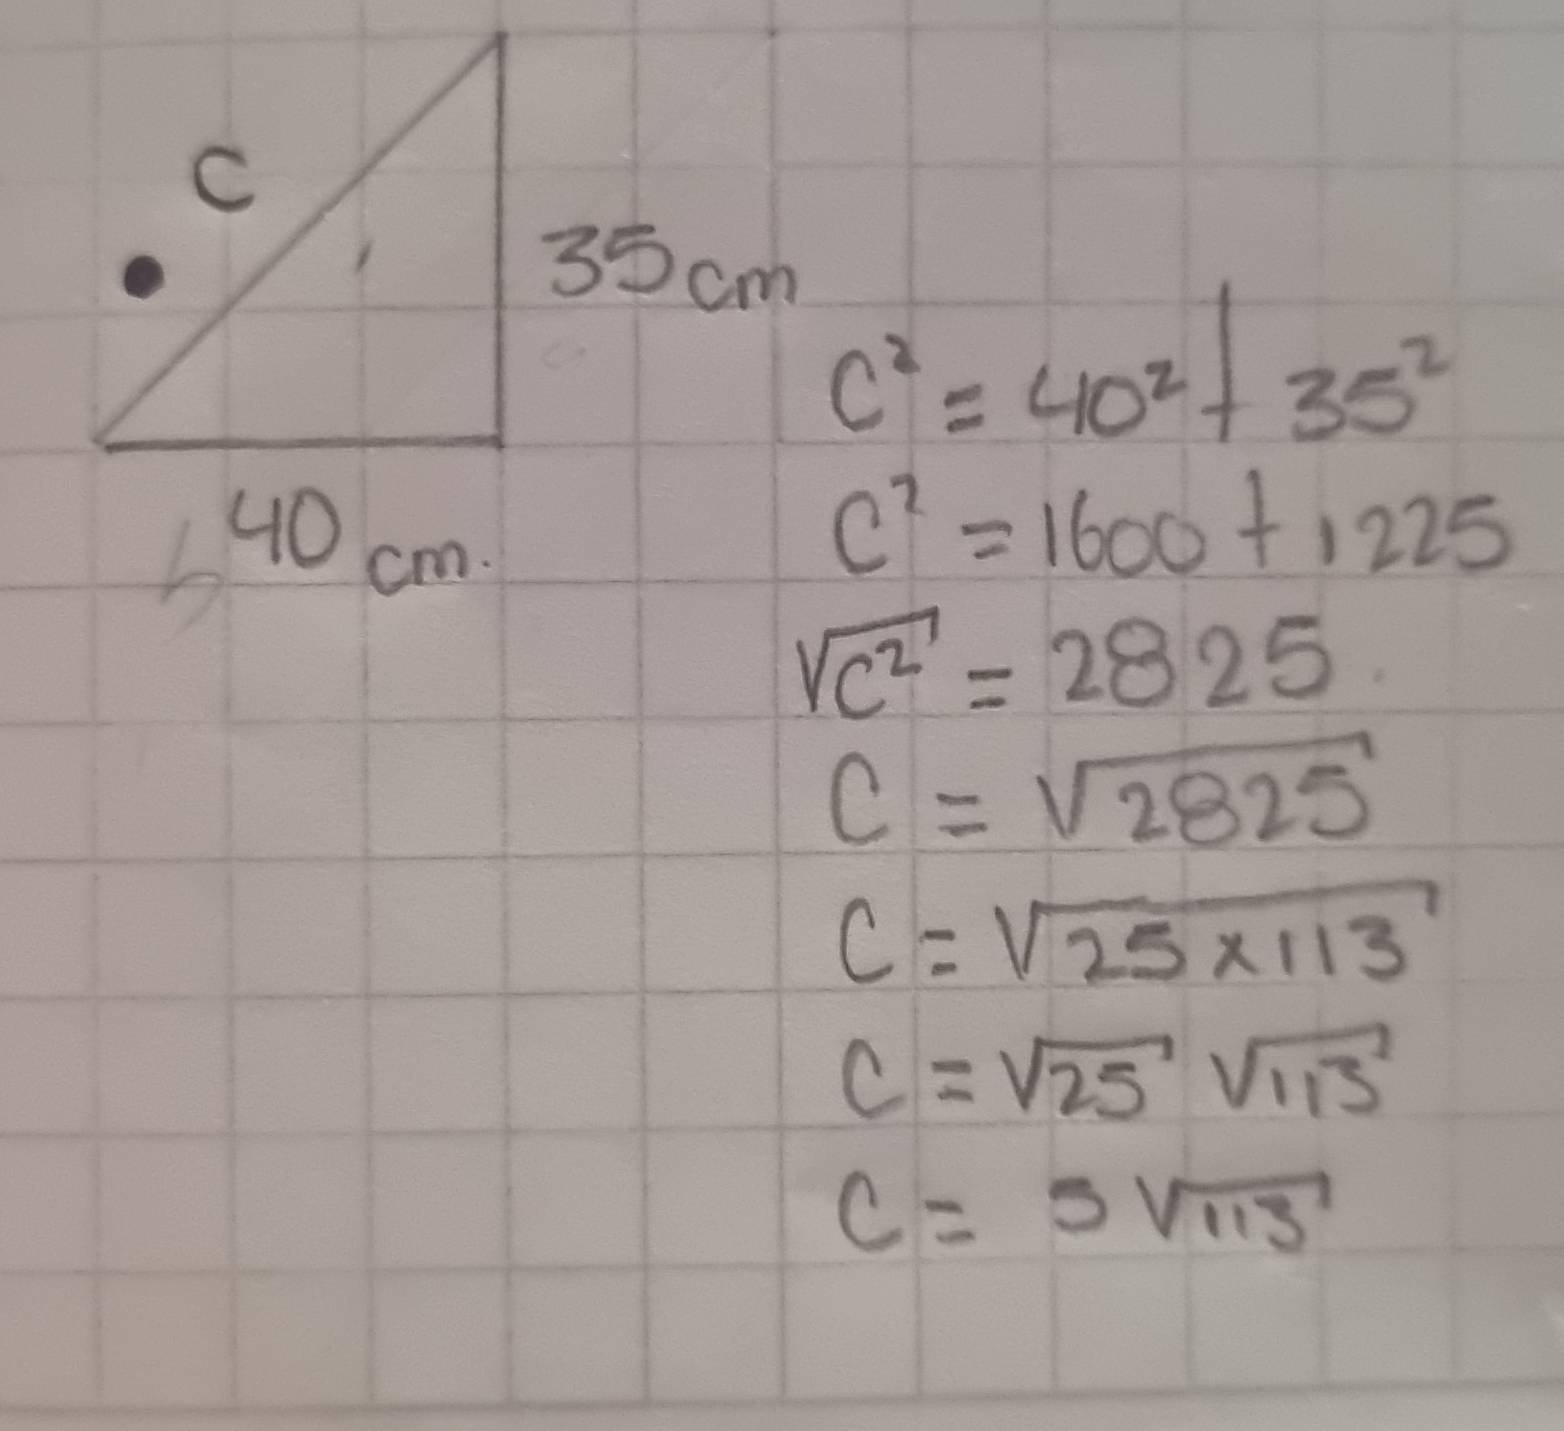 C
35 cm
40 cm.
C² = 40² + 35²
C² = 1600 + 1225
√C² = 2825.
C = √2825
C = √25 x 113
C = √25 √113
C = 5 √113